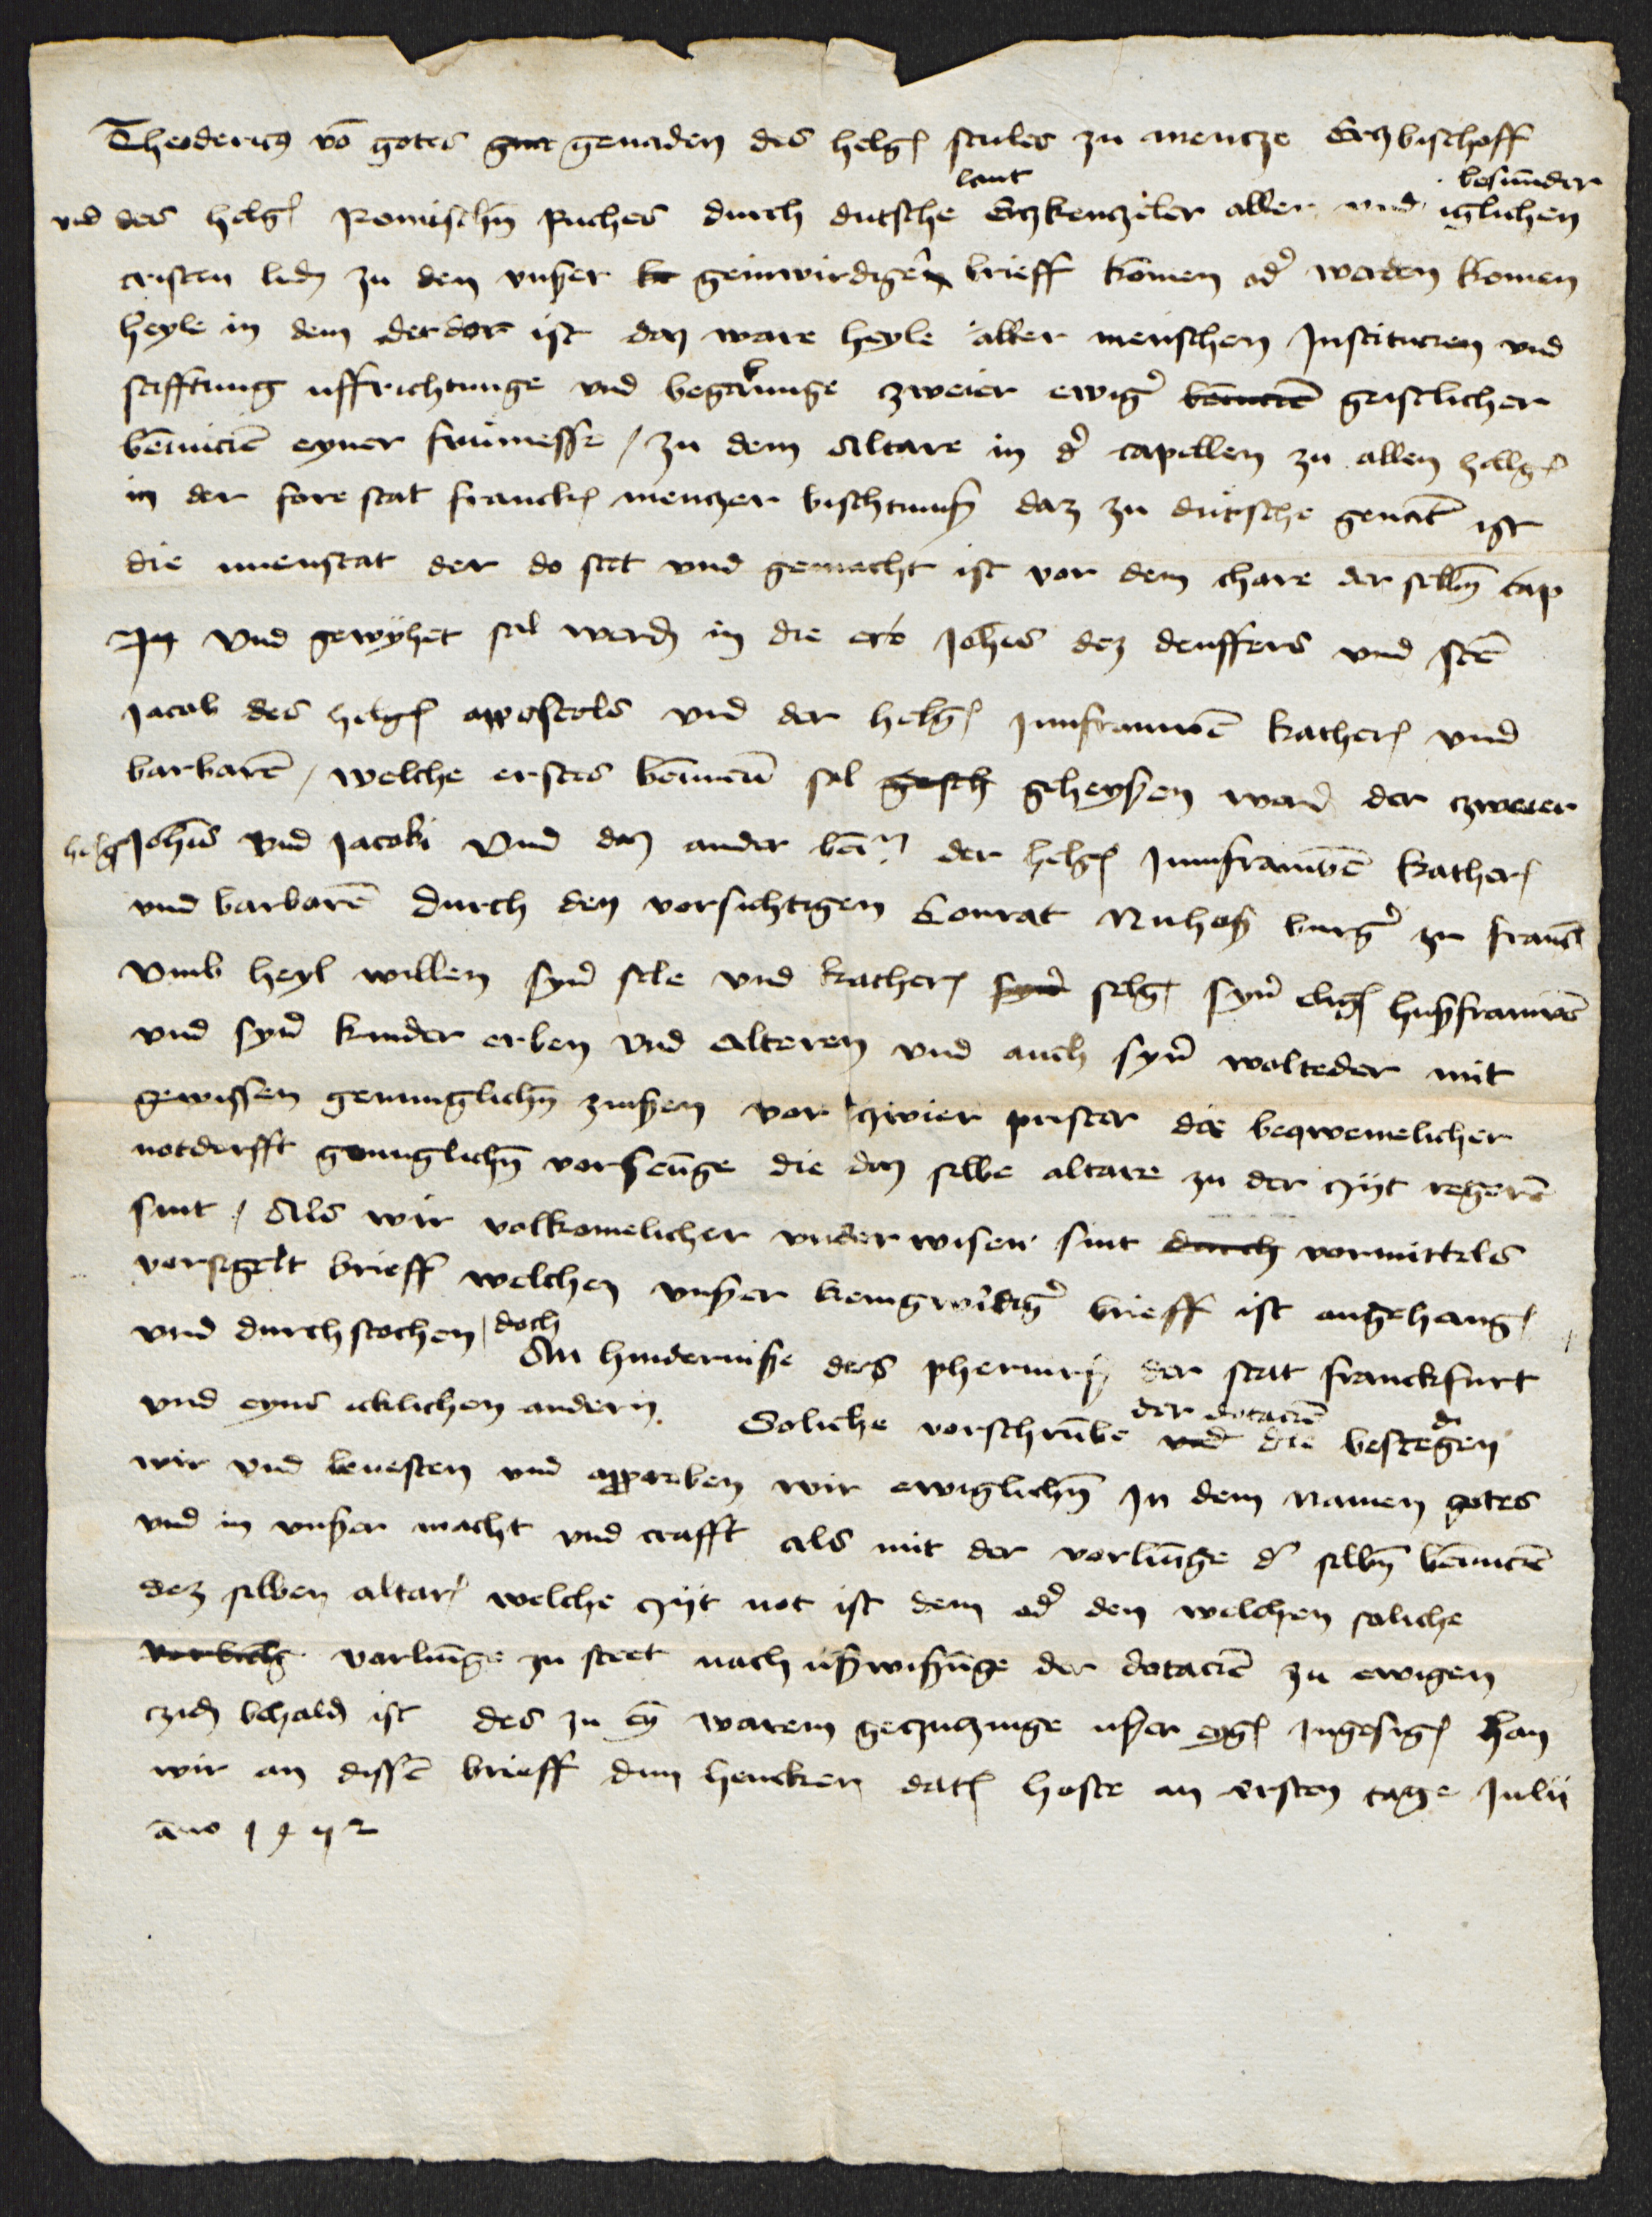 Theodericus vō gotes gna genaden des helgen stules zu mentze Ertzbischoff
lant besunder
vnd des helgen Romischen Riches durch dutsche Ertzkentzeler aller vnd iglichen
cristen luden zu den vnßer ke geinwirdigen brieff komen oder werden komen
heyle in dem der dor ist daz ware heyle aller menschen Institucien vnd
stifftung uffrichtunge vnd begabunge zweier ewiger beneficien geistlicher
beneficien eyner frumesse / zu dem Altare in der capellen zu allen helgen
in der fore stat franckf mentzer bischtumß daz zu dutsche genant ist
die nuenstat der do stet vnd gemacht ist vor dem chore der selben cap
In vnd gewyhet sal werden in die ere Johannis dez deuffers vnd sten
Jacob des helgen apostols vnd der helgen Junfrauwen Katherin vnd
barbaren / welche erstes beneficium sal gesch geheyßen werden der zweier
helg Johannis vnd Jacobi vnd daz ander ben der helgen Junfrauwen Katherin
vnd barbaren durch den vorsichtigen Conrat Nuhoß burger zu franck
vmb heyl willen syner sele vnd Katherin syner selgen syner elichen hußfrauwen
vnd syner kinder erben vnd Alteren vnd auch syner wolteder mit
gewissen genunglichen zinßen vor zwier prister die beqwemelicher
notdurfft genunglichen vorsenge die daz selbe altare zu der zyt regeren
sint / Als wir volkomelicher vnderwisen sint durch vormittels
vorsigelt brieff welchen vnßer geingwirdiger brieff ist angehangen
vnd durchstochen / doch An hinderniße des pherners der stat franckfurt
vnd eyns icklichen andern. Soliche vorschribe der dotacien vnd die bestedgen
wir vnd bevesten vnd approben wir ewiglichen In dem namen gotes
vnd in vnßer macht vnd crafft als mit der vorliunge der selben beneficien
dez selben altars welche zyt not ist dem oder den welchen soliche
vorliung vorliunge zu stet nach ußwißunge der dotacien zu ewigen
cziden behalden ist des zu eyn warem getzugnge unßer eygen Ingesigel han
wir an dissen brieff dun hencken datum hoste an ersten tage Julii
anno